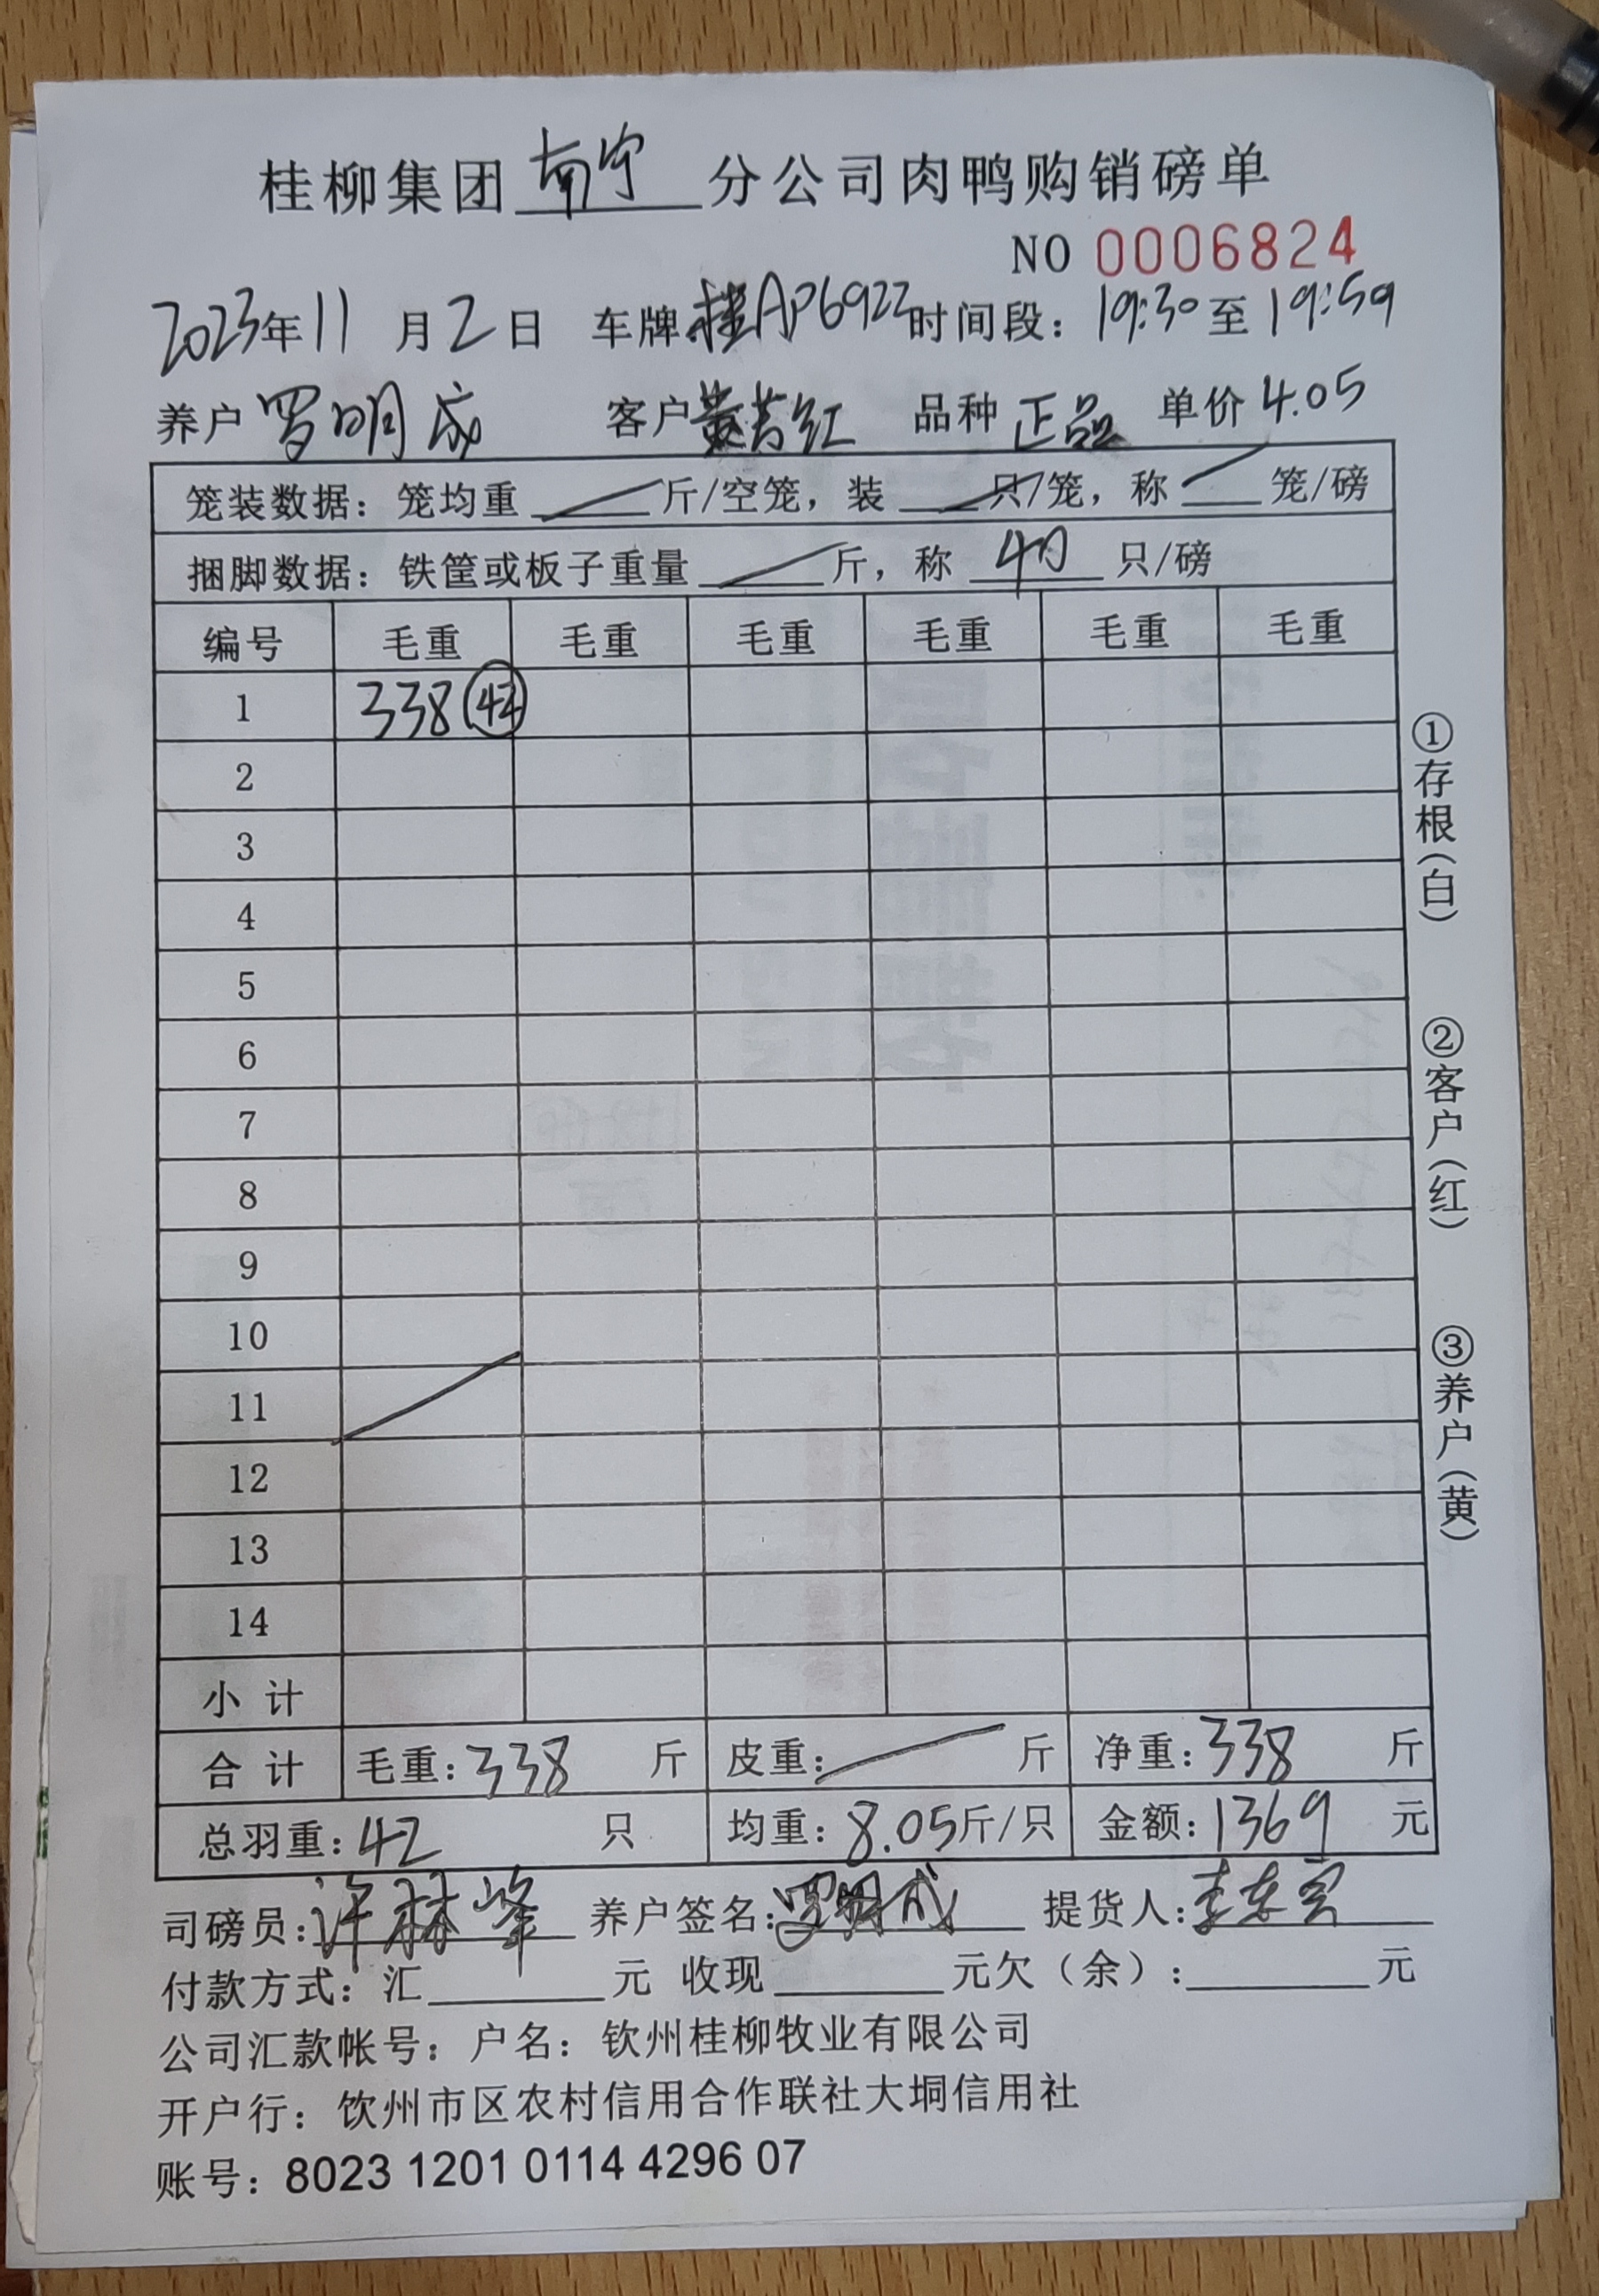 桂柳集团南宁分公司肉鸭购销磅单
NO 0006824
2023年11月2日 车牌桂AP6922时间段：19:30至19:59
养户罗明成 客户黄芳红 品种正品 单价4.05
笼装数据：笼均重 斤/空笼，装 只/笼，称 笼/磅
捆脚数据：铁筐或板子重量 斤，称 40 只/磅
编号 毛重 毛重 毛重 毛重 毛重 毛重
1 338 42
2
3
4
5
6
7
8
9
10
11
12
13
14
小计
合计 毛重：338 斤 皮重： 斤 净重：338 斤
总羽重：42 只 均重：8.05斤/只 金额：1369 元
司磅员：许林峰 养户签名：罗明成 提货人：
付款方式：汇 元 收现 元欠（余）： 元
公司汇款帐号：户名：钦州桂柳牧业有限公司
开户行：钦州市区农村信用合作联社大垌信用社
账号：8023 1201 0114 4296 07
①存根（白）
②客户（红）
③养户（黄）